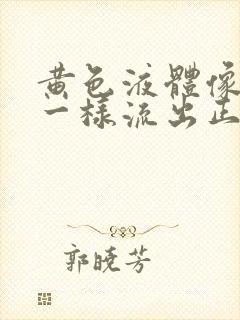 黄色液體像
一樣流出正
郭曉芳